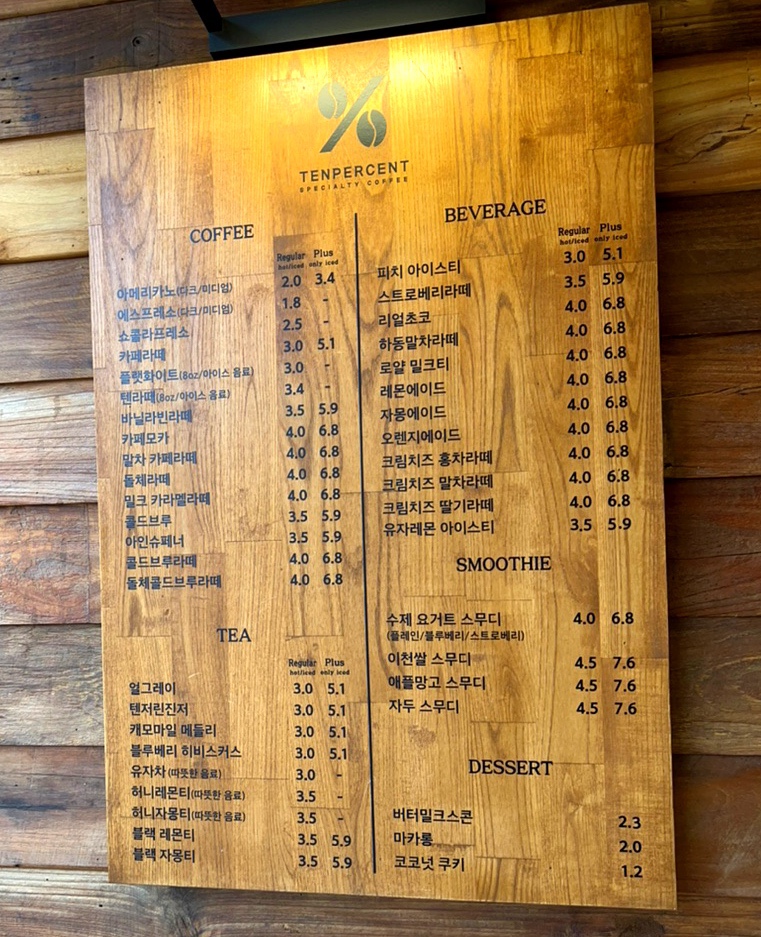 TENPERCENT
SPECIALTY COFFEE
COFFEE
Regular Plus
hot/iced only iced
아메리카노(다크/미디엄) 2.0 3.4
에스프레소(다크/미디엄) 1.8 -
쇼콜라프레소 2.5 -
카페라떼 3.0 5.1
플랫화이트(8oz/아이스 음료) 3.0 -
텐라떼(8oz/아이스 음료) 3.4 -
바닐라빈라떼 3.5 5.9
카페모카 4.0 6.8
말차 카페라떼 4.0 6.8
돌체라떼 4.0 6.8
밀크 카라멜라떼 4.0 6.8
콜드브루 3.5 5.9
아인슈페너 3.5 5.9
콜드브루라떼 4.0 6.8
돌체콜드브루라떼 4.0 6.8
TEA
Regular Plus
hot/iced only iced
얼그레이 3.0 5.1
텐저린진저 3.0 5.1
캐모마일 메들리 3.0 5.1
블루베리 히비스커스 3.0 5.1
유자차 (따뜻한 음료) 3.0 -
허니레몬티(따뜻한 음료) 3.5 -
허니자몽티(따뜻한 음료) 3.5 -
블랙 레몬티 3.5 5.9
블랙 자몽티 3.5 5.9
BEVERAGE
Regular Plus
hot/iced only iced
피치 아이스티 3.0 5.1
스트로베리라떼 3.5 5.9
리얼초코 4.0 6.8
하동말차라떼 4.0 6.8
로얄 밀크티 4.0 6.8
레몬에이드 4.0 6.8
자몽에이드 4.0 6.8
오렌지에이드 4.0 6.8
크림치즈 홍차라떼 4.0 6.8
크림치즈 말차라떼 4.0 6.8
크림치즈 딸기라떼 4.0 6.8
유자레몬 아이스티 3.5 5.9
SMOOTHIE
수제 요거트 스무디 4.0 6.8
(플레인/블루베리/스트로베리)
이천쌀 스무디 4.5 7.6
애플망고 스무디 4.5 7.6
자두 스무디 4.5 7.6
DESSERT
버터밀크스콘 2.3
마카롱 2.0
코코넛 쿠키 1.2